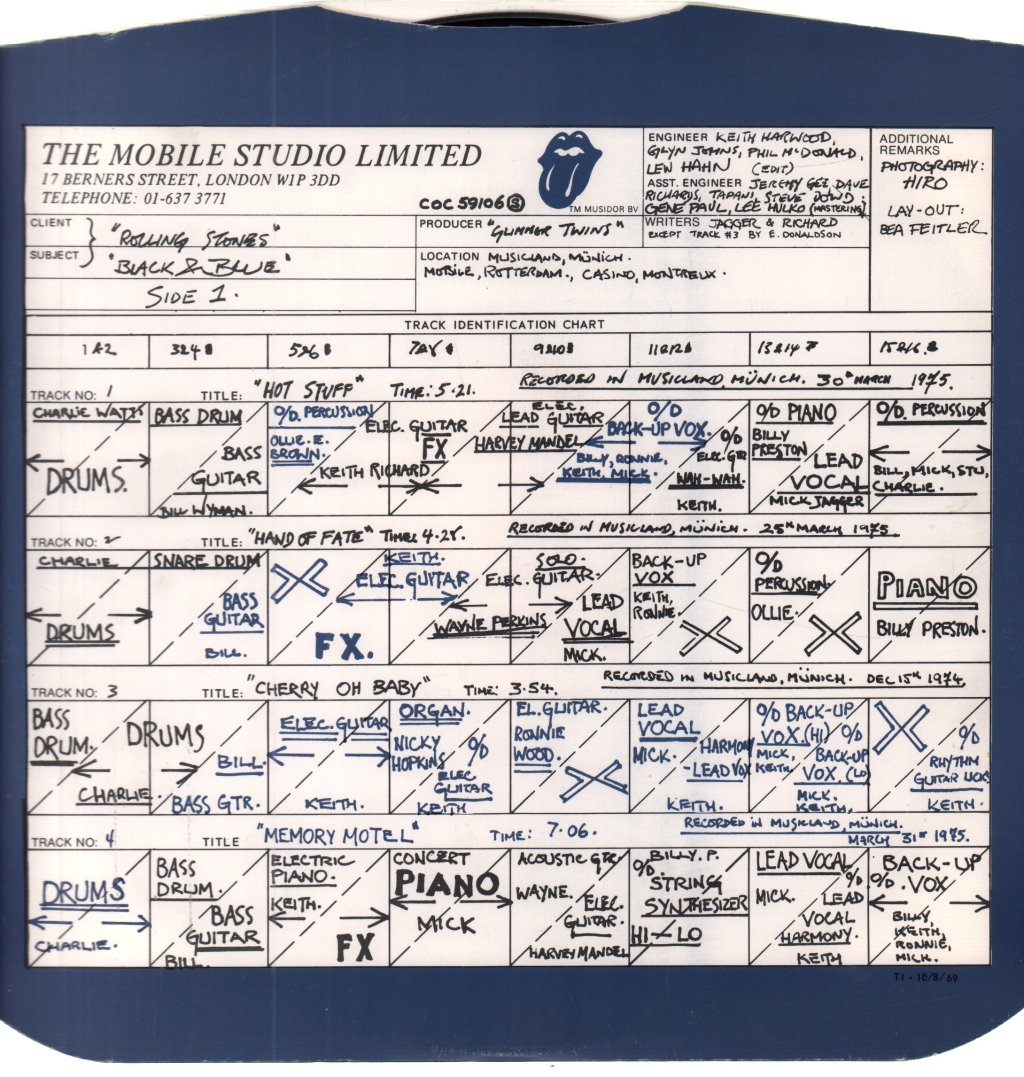 THE MOBILE STUDIO LIMITED
17 BERNERS STREET, LONDON W1P 3DD
TELEPHONE: 01-637 3771
COC 59106 S
TM MUSIDOR BV
ENGINEER KEITH HARWOOD,
GLYN JOHNS, PHIL McDONALD,
LEW HAHN (EDIT)
ASST. ENGINEER JEREMY GEE, DAVE
RICHARDS, TAPANI, STEVE DOWD;
GENE PAUL, LEE HULKO (MASTERING)
WRITERS JAGGER & RICHARD
EXCEPT TRACK #3 BY E. DONALDSON
ADDITIONAL
REMARKS
PHOTOGRAPHY:
HIRO
LAY-OUT:
BEA FEITLER
CLIENT
SUBJECT
"ROLLING STONES"
"BLACK & BLUE"
SIDE 1.
PRODUCER "GLIMMER TWINS"
LOCATION MUSICLAND, MÜNICH.
MOBILE, ROTTERDAM., CASINO, MONTREUX.
TRACK IDENTIFICATION CHART
1 & 2 3 & 4 5 & 6 7 & 8 9 & 10 11 & 12 13 & 14 15 & 16
TRACK NO: 1 TITLE: "HOT STUFF" TIME: 5·21. RECORDED IN MUSICLAND, MÜNICH. 30th MARCH 1975.
CHARLIE WATTS
DRUMS.
BASS DRUM
BASS
GUITAR
BILL WYMAN.
O/D. PERCUSSION
OLLIE. E.
BROWN.
KEITH RICHARD
ELEC. GUITAR
FX
ELEC.
LEAD GUITAR
HARVEY MANDEL
O/D
BACK-UP VOX.
BILLY, RONNIE,
KEITH, MICK.
O/D
ELEC. GTR
WAH-WAH.
KEITH.
O/D PIANO
BILLY
PRESTON
LEAD
VOCAL
MICK JAGGER
O/D. PERCUSSION
BILL, MICK, STU,
CHARLIE.
TRACK NO: 2 TITLE: "HAND OF FATE" TIME: 4·28. RECORDED IN MUSICLAND, MÜNICH. 25th MARCH 1975.
CHARLIE
DRUMS
SNARE DRUM
BASS
GUITAR
BILL.
FX.
KEITH.
ELEC. GUITAR
WAYNE PERKINS
SOLO.
ELEC. GUITAR.
LEAD
VOCAL
MICK.
BACK-UP
VOX
KEITH,
RONNIE.
O/D
PERCUSSION.
OLLIE.
PIANO
BILLY PRESTON.
TRACK NO: 3 TITLE: "CHERRY OH BABY" TIME: 3·54. RECORDED IN MUSICLAND, MÜNICH. DEC 15th 1974.
BASS
DRUM.
DRUMS
CHARLIE.
BILL.
BASS GTR.
ELEC. GUITAR
KEITH.
ORGAN.
NICKY
HOPKINS
O/D
ELEC
GUITAR
KEITH
EL. GUITAR.
RONNIE
WOOD.
LEAD
VOCAL
MICK.
HARMONY
-LEAD VOX
KEITH.
O/D BACK-UP
VOX (HI)
MICK,
KEITH.
O/D
BACK-UP
VOX. (LO)
MICK.
KEITH.
O/D
RHYTHM
GUITAR LICKS
KEITH.
TRACK NO: 4 TITLE "MEMORY MOTEL" TIME: 7·06. RECORDED IN MUSICLAND, MÜNICH.
MARCH 31st 1975.
DRUMS
CHARLIE.
BASS
DRUM.
BASS
GUITAR
BILL.
ELECTRIC
PIANO.
KEITH.
FX
CONCERT
PIANO
MICK
ACOUSTIC GTR.
WAYNE.
ELEC.
GUITAR.
HARVEY MANDEL
BILLY. P.
O/D
STRING
SYNTHESIZER
HI - LO
LEAD VOCAL
MICK.
O/D
LEAD
VOCAL
HARMONY.
KEITH
BACK-UP
O/D. VOX
BILLY,
KEITH,
RONNIE,
MICK.
T1 - 10/8/69